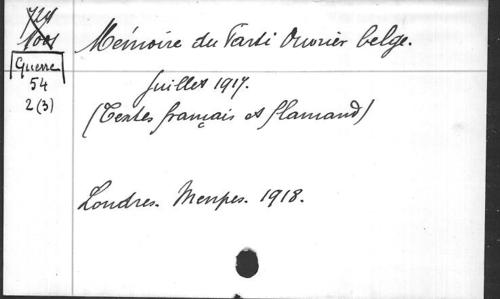 Mémoire du Parti Ouvrier belge.
Guerre
54
2(3)
Juillet 1917.
(Textes français et flamand)
Londres. Menpes. 1918.